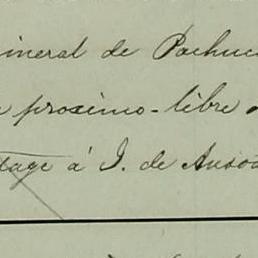 mineral de Pachuc
proximo-libre
tage á J. de Ansoa